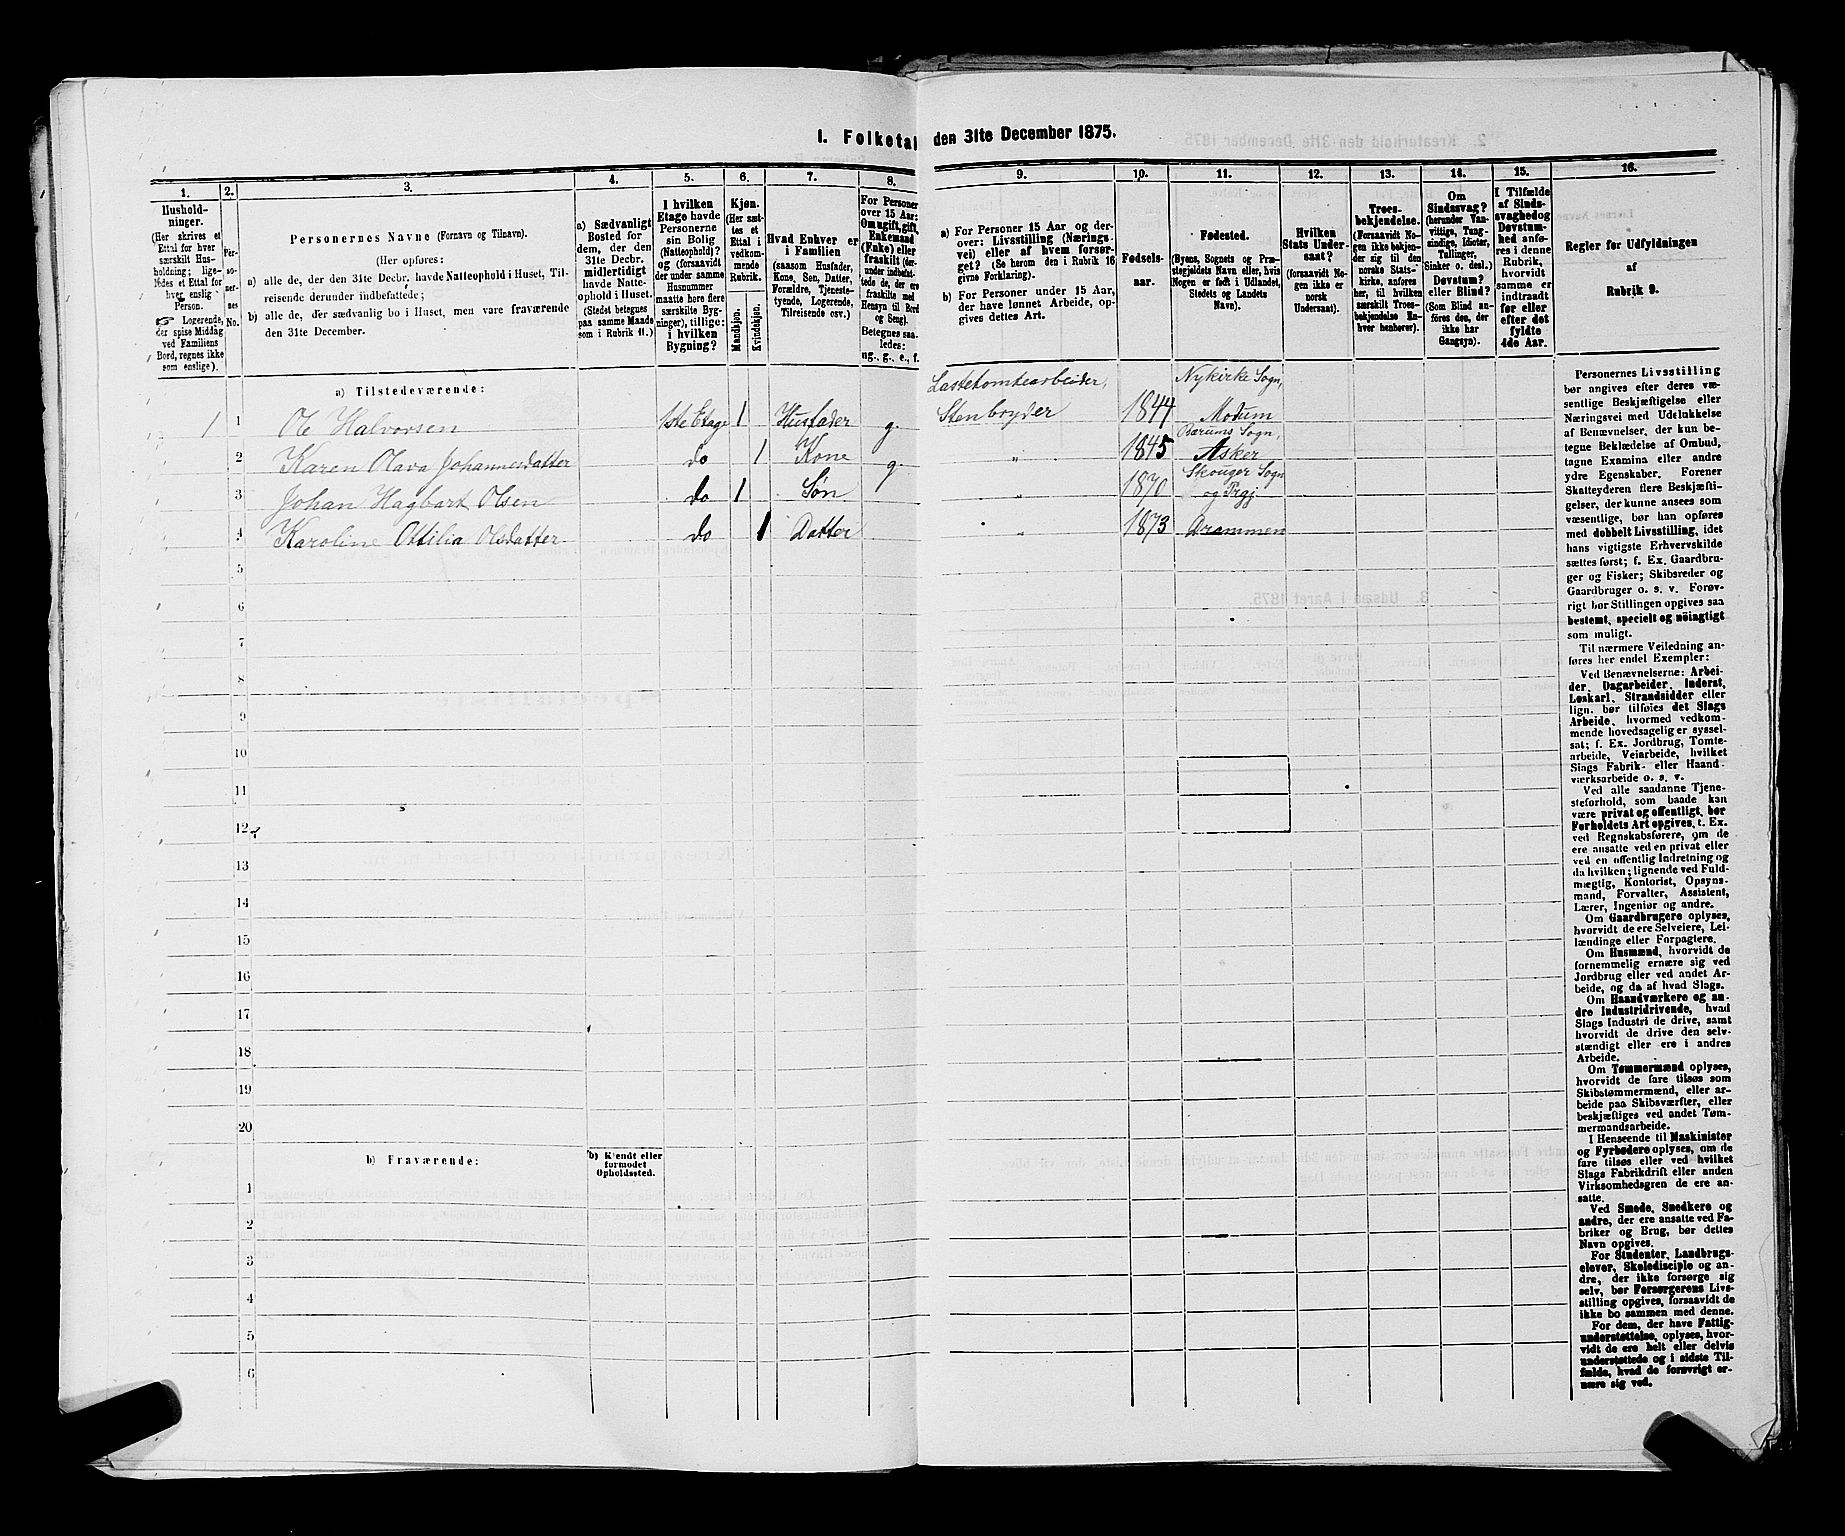 I. Folketal den 31te December 1875.
1. 2. 3. 4. 5. 6. 7. 8. 9. 10. 11. 12. 13. 14. 15. 16.
Husholdninger.
(Her skrives et
Ettal for hver
særskilt Husholdning;
ligeledes et Ettal for
hver enslig
Person.
☞ Logerende,
der spise Middag
ved Familiens
Bord, regnes ikke
som enslige).
Personernes No.
Personernes Navne (Fornavn og Tilnavn).
(Her opføres:
a) alle de, der den 31te Decbr. havde Natteophold i Huset, Tilreisende derunder indbefattede;
b) alle de, der sædvanlig bo i Huset, men vare fraværende
den 31te December.
a) Sædvanligt
Bosted for
dem, der den
31te Decbr.
midlertidigt
havde Natteophold i Huset.
(Stedet betegnes
paa samme Maade
som i Rubrik 11.)
I hvilken
Etage havde
Personerne
sin Bolig
(Natteophold)?
og (forsaavidt
der under samme
Husnummer
maatte høre flere
særskilte Bygninger), tillige:
i hvilken
Bygning?
Kjøn.
(Her sættes et
Ettal i
vedkommende
Rubrik.
Mandkjøn.
Kvindekjøn.
Hvad Enhver er
i Familien
(saasom Husfader,
Kone, Søn, Datter,
Forældre, Tjenestetyende, Logerende,
Tilreisende osv.)
For Personer
over 15 Aar:
Om ugift, gift,
Enkemand
(Enke) eller
fraskilt (derunder indbefattede de, der ere
fraskilte med
Hensyn til Bord
og Seng).
Betegnes saaledes:
ug., g., e., f.
a) For Personer 15 Aar og derover: Livsstilling (Næringsvei) eller af hvem forsørget? (Se herom den i Rubrik 16
givne Forklaring).
b) For Personer under 15 Aar,
der have lønnet Arbeide, opgives dettes Art.
Fødselsaar.
Fødested.
(Byens, Sognets og Præstegjeldets Navn eller, hvis
Nogen er født i Udlandet,
Stedets og Landets
Navn).
Hvilken
Stats Undersaat?
(forsaavidt Nogen ikke er
norsk
Undersaat).
Troesbekjendelse.
(Forsaavidt Nogen ikke bekjender sig til den
norske Statskirke, anføres
her, til hvilken
særskilt Troesbekjendelse Enhver henhører).
Om
Sindssvag?
(herunder Vanvittige, Tungsindige, Idioter,
Tullinger,
Sinker o. desl.)
Døvstum?
eller Blind?
(Som Blind anføres den, der
ikke har
Gangsyn).
I Tilfælde
af Sindssvaghed og
Døvstumhed anføres i denne
Rubrik,
hvorvidt
samme er
indtraadt
før eller
efter det
fyldte
4de Aar.
Regler for Udfyldningen
af
Rubrik 9.
a) Tilstedeværende:
Lastetomtearbeider, Nykirke Sogn,
1 1 Ole Halvorsen 1ste Etage 1 Husfader g. Stenbryder 1844 Modum
Bærums Sogn,
2 Karen Olava Johannesdatter do 1 Kone g. " 1845 Asker
Skouger Sogn
3 Johan Hagbart Olsen do 1 Søn " 1870 og Prgj
4 Karoline Ottilia Olsdatter do 1 Datter " 1873 Drammen
5
6
7
8
9
10
11
12
13
14
15
16
17
18
19
20
b) Fraværende:
b) Kjendt eller
formodet
Opholdssted.
1
2
3
4
5
6
Personernes Livsstilling
bør angives efter deres væsentlige Beskjæftigelse eller
Næringsvei med Udelukkelse
af Benævnelser, der kun betegne Beklædelse af Ombud,
tagne Examina eller andre
ydre Egenskaber. Forener
Skatteyderen flere Beskjæftigelser, der kunne ansees som
væsentlige, bør han opføres
med dobbelt Livsstilling, idet
hans vigtigste Erhvervskilde
sættes først; f. Ex. Gaardbruger og Fisker; Skibsreder og
Gaardbruger o. s. v. Forøvrigt bør Stillingen opgives saa
bestemt, specielt og nøiagtigt
som muligt.
Til nærmere Veiledning anføres her endel Exempler:
Ved Benævnelserne: Arbeider, Dagarbeider, Inderst,
Løskarl, Strandsidder eller
lign. bør tilføies det Slags
Arbeide, hvormed vedkommende hovedsagelig er sysselsat; f. Ex. Jordbrug, Tomtearbeide, Veiarbeide, hvilket
Slags Fabrik- eller Haandværksarbeide o. s. v.
Ved alle saadanne Tjenesteforhold, som baade kan
være privat og offentligt, bør
Forholdets Art opgives, t. Ex.
ved Regnskabsførere, om de
ere ansatte ved en privat eller
ved en offentlig Indretning og
da hvilken; lignende ved Fuldmægtig, Kontorist, Opsynsmand, Forvalter, Assistent,
Lærer, Ingeniør og andre.
Om Gaardbrugere oplyses,
hvorvidt de ere Selveiere, Leilændinge eller Forpagtere.
Om Husmænd, hvorvidt de
fornemmelig ernære sig ved
Jordbrug eller ved andet Arbeide, og da af hvad Slags.
Om Haandværkere og andre Industridrivende, hvad
Slags Industri de drive, samt
hvorvidt de drive den selvstændigt eller ere i andres
Arbeide.
Om Tømmermænd oplyses,
hvorvidt de fare tilsøs som
Skibstømmermænd, eller arbeide paa Skibsværfter, eller
beskjæftiges ved andet Tømmermandsarbeide.
I Henseende til Maskinister
og Fyrbødere oplyses, om de
fare tilsøs eller ved hvilket
Slags Fabrikdrift eller anden
Virksomhedsgren de ere ansatte.
Ved Smede, Snedkere og
andre, der ere ansatte ved Fabriker og Brug, bør dettes
Navn opgives.
For Studenter, Landbrugselever, Skoledisciple og andre, der ikke forsørge sig
selv, bør Forsørgerens Livsstilling opgives, forsaavidt de
ikke bo sammen med denne.
For dem, der have Fattigunderstøttelse, oplyses, hvorvidt de ere helt eller delvis
understøttede og i sidste Tilfælde, hvad de forøvrigt ernære sig ved.